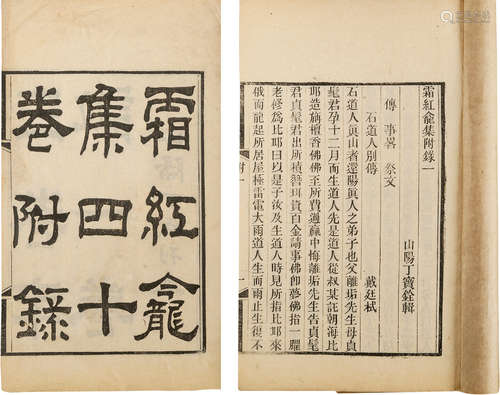 霜紅龕
集四十
卷附錄
霜紅龕集附錄一
山陽丁寶銓輯
傳 事畧 祭文
石道人別傳 戴廷栻
石道人眞山者還陽眞人之弟子也父離垢先生母貞
髦君孕十二月而生道人先是道人從叔某記朝海比
耶造旃檀香佛佛至所費過贏中悔離垢先生告貞髦
君貞髦君出所積簪珥資百金請事佛卽夢佛指一臞
老修爲比耶曰以是子汝及生道人時見所指比耶來
俄而龍起所居屋極雷電大雨道人生而雨止生復不
附一